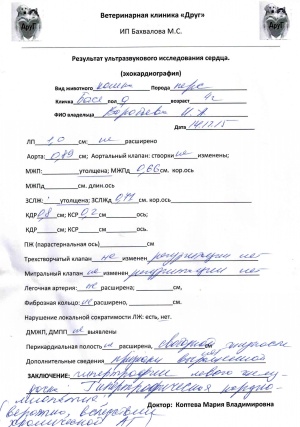 Ветеринарная клиника «Друг»
ИП Бахвалова М.С.
Результат ультразвукового исследования сердца.
(эхокардиография)
Вид животного кошка Порода перс
Кличка Бася пол возраст
ФИО владельца
Дата 14.12.15
ЛП 1,0 см; не расширено
Аорта: 0,89 см; Аортальный клапан: створки не изменены;
МЖП: утолщена; МЖПд 0,66 см. кор.ось
МЖПд см. длин.ось
ЗСЛЖ: утолщена; ЗСЛЖд 0,77 см. кор.ось
КДР 0,8 см; КСР 0,2 см ось;
КДР см; КСР см ось;
ПЖ (парастернальная ось) см
Трехстворчатый клапан не изменен регургитации нет
Митральный клапан не изменен регургитации нет
Легочная артерия: не расширена; см,
Фиброзное кольцо: не расширено, см.
Нарушение локальной сократимости ЛЖ: есть, нет.
ДМЖП, ДМПП не выявлены
Перикардиальная полость не расширена, свободной жидкости нет
Дополнительные сведения
ЗАКЛЮЧЕНИЕ: гипертрофия левого желу-
дочка. Гипертрофическая кардио-
миопатия
(вероятно, вследствии
хронической АГ)
Доктор: Коптева Мария Владимировна